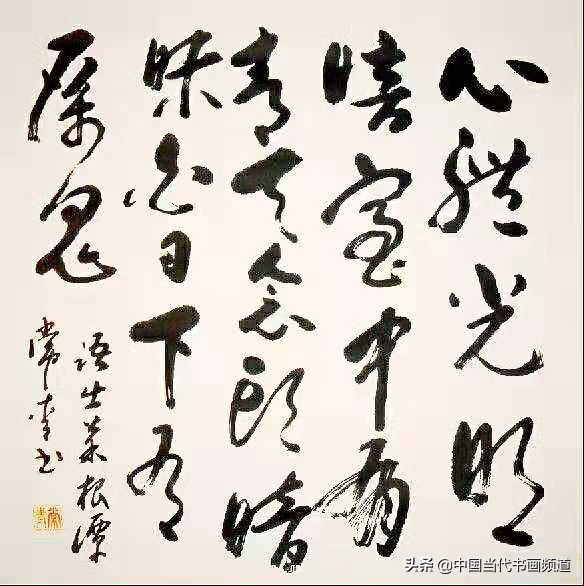 心體光明
暗室中有
青天念頭暗
昧白日下有
厲鬼
語出菜根譚
常 书
头条 @中国当代书画频道